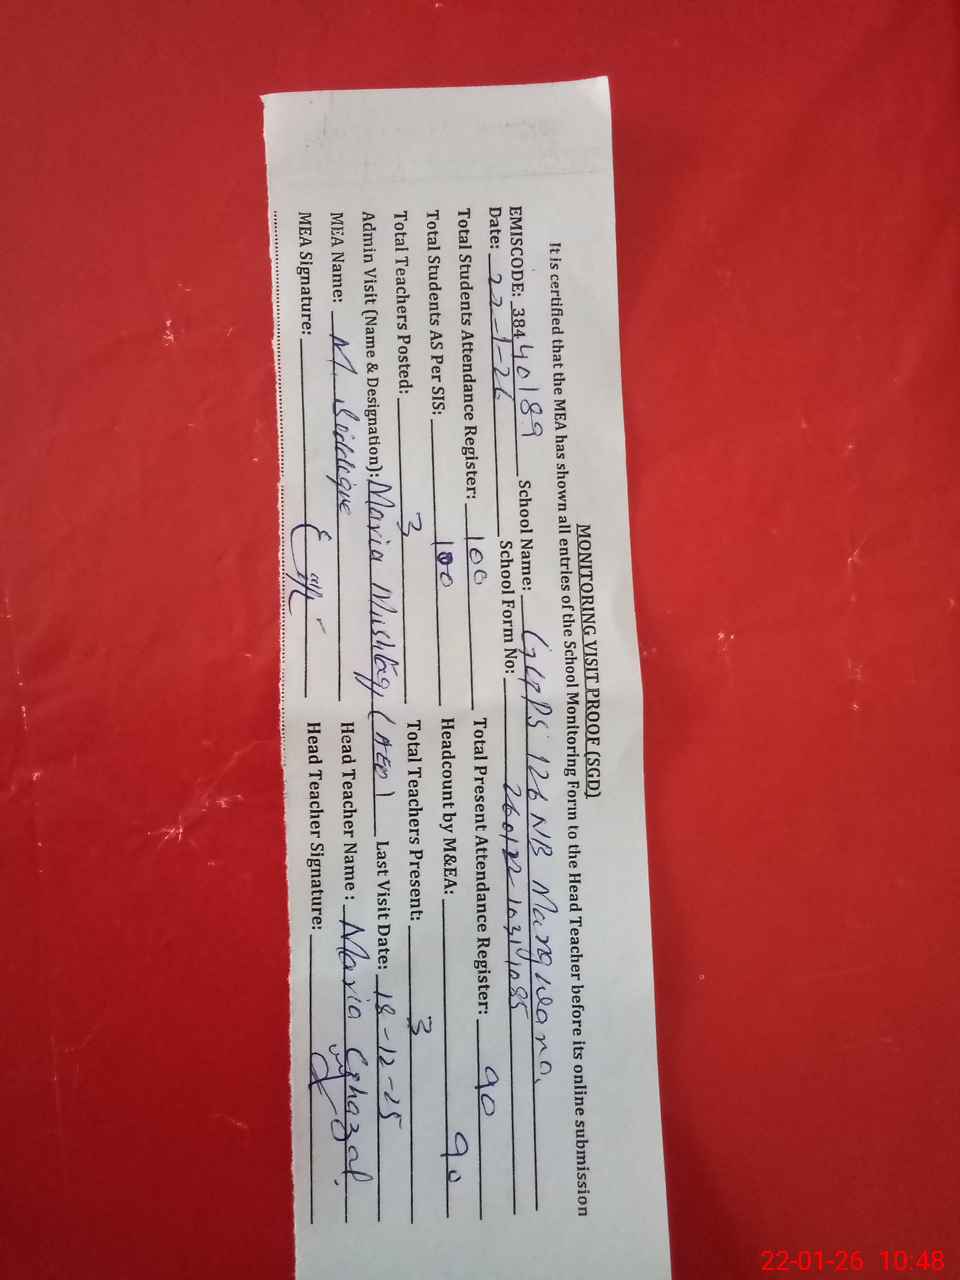 MONITORING VISIT PROOF (SGD)
It is certified that the MEA has shown all entries of the School Monitoring Form to the Head Teacher before its online submission
EMISCODE: 38440189 School Name: GGPS 126 NB Mangwana
Date: 22-1-26 School Form No: 260122-1031
Total Students Attendance Register: 100 Total Present Attendance Register: 90
Total Students AS Per SIS: 100 Headcount by M&EA: 90
Total Teachers Posted: 3 Total Teachers Present: 3
Admin Visit (Name & Designation): Maria Mushtaq (AEO) Last Visit Date: 18-12-25
MEA Name: M. Siddique Head Teacher Name : Maria Ghazal.
MEA Signature: Head Teacher Signature:
22-01-26 10:48